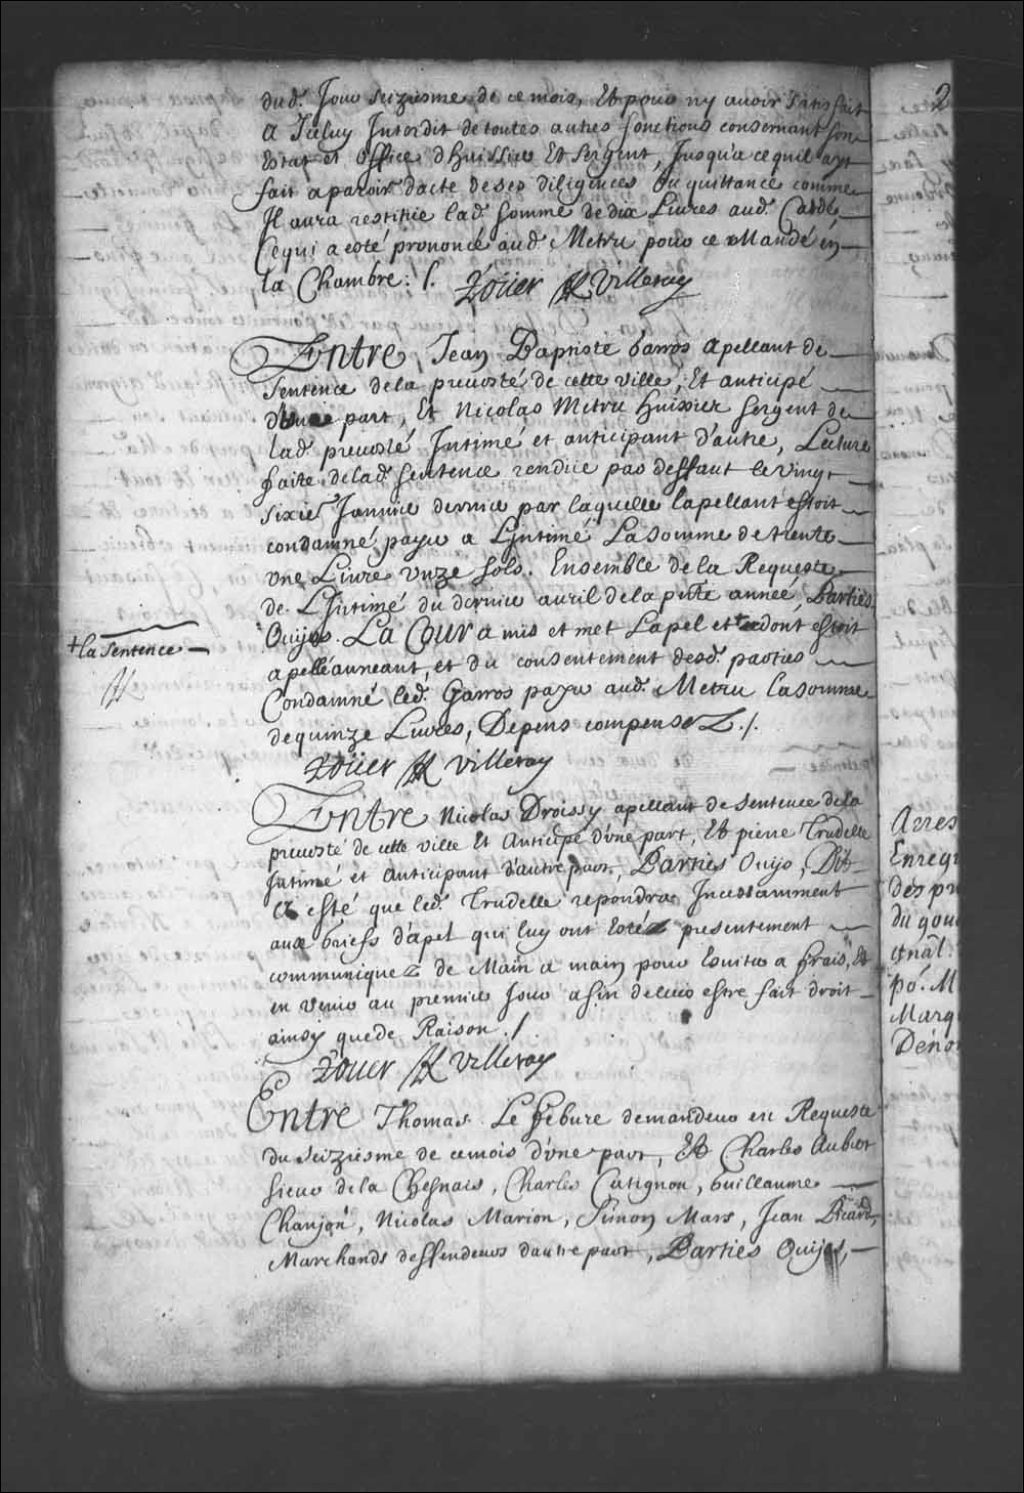 dud. Jour seiziesme de ce mois, Et pour ny auoir satisfait
a Iceluy Interdit de toutes autres fonctions concernant son
Estat et office d'huissier Et sergent, Jusqu'a ce quil ayt
fait aparoir dacte de ses diligences ou quittance comme
Il aura restitué lad. somme de dix Liures aud.
Ce qui a esté prononcé aud. Metru pour ce Mandé en
la Chambre ./.
Roüer Villeray
Entre Jean Baptiste Garros apellant de
Sentence de la preuosté de cette ville, Et anticipé
d'une part, Et Nicolas Metru huissier sergent de
lad. preuosté Intimé et anticipant d'autre, Lecture
faite de lad. sentence rendüe par deffaut le vingt
sixie Januier dernier par laquelle lapellant estoit
condamné payer a Lintimé La somme de trente
une Liure unze sols. Ensemble de la Requeste
de Lintimé du dernier auril de la pnte année, Parties
Ouijes. La Cour a mis et met Lapel et dont estoit
+ la sentence
apellé au neant, et du consentement desd. parties
Condamné led. Garros payer aud. Metru la somme
de quinze Liures, Depens compensez ./.
Roüer Villeray
Entre Nicolas Droissy apellant de sentence de la
preuosté de cette ville Et Anticipé d'vne part, Et pierre Trudelle
Intimé et anticipant d'autre part, Parties Ouijes, Dit
a esté que led. Trudelle repondra Incessamment
aux briefs d'apel qui luy ont esté presentement
communiquez de Main a main pour Euiter a frais, Et
en venir au premier Jour afin de leur estre fait droit
ainsy que de Raison ./.
Roüer Villeray
Entre Thomas Le febure demandeur en Requeste
du seiziesme de ce mois d'vne part, Et Charles Aubert
sieur de la Chesnais, Charles Catignon, Guillaume
Chanjon, Nicolas Marion, Simon Mars, Jean Picard,
Marchands deffendeurs dautre part, Parties Ouijes,
2
Arres
Enregi
des pr
du gou
gnal.
po. M
Marq
Déno